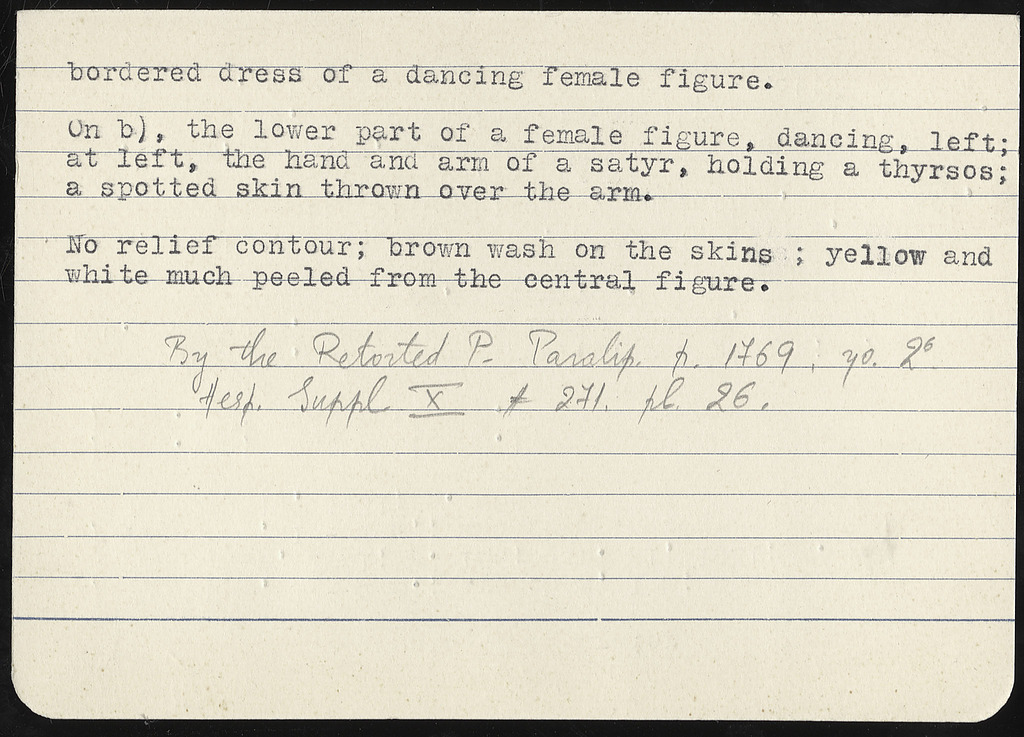 bordered dress of a dancing female figure.
On b), the lower part of a female figure, dancing, left;
at left, the hand and arm of a satyr, holding a thyrsos;
a spotted skin thrown over the arm.
No relief contour; brown wash on the skins ; yellow and
white much peeled from the central figure.
By the Retorted P. Paralip. p. 1769,
Hesp. Suppl X 271. pl. 26.